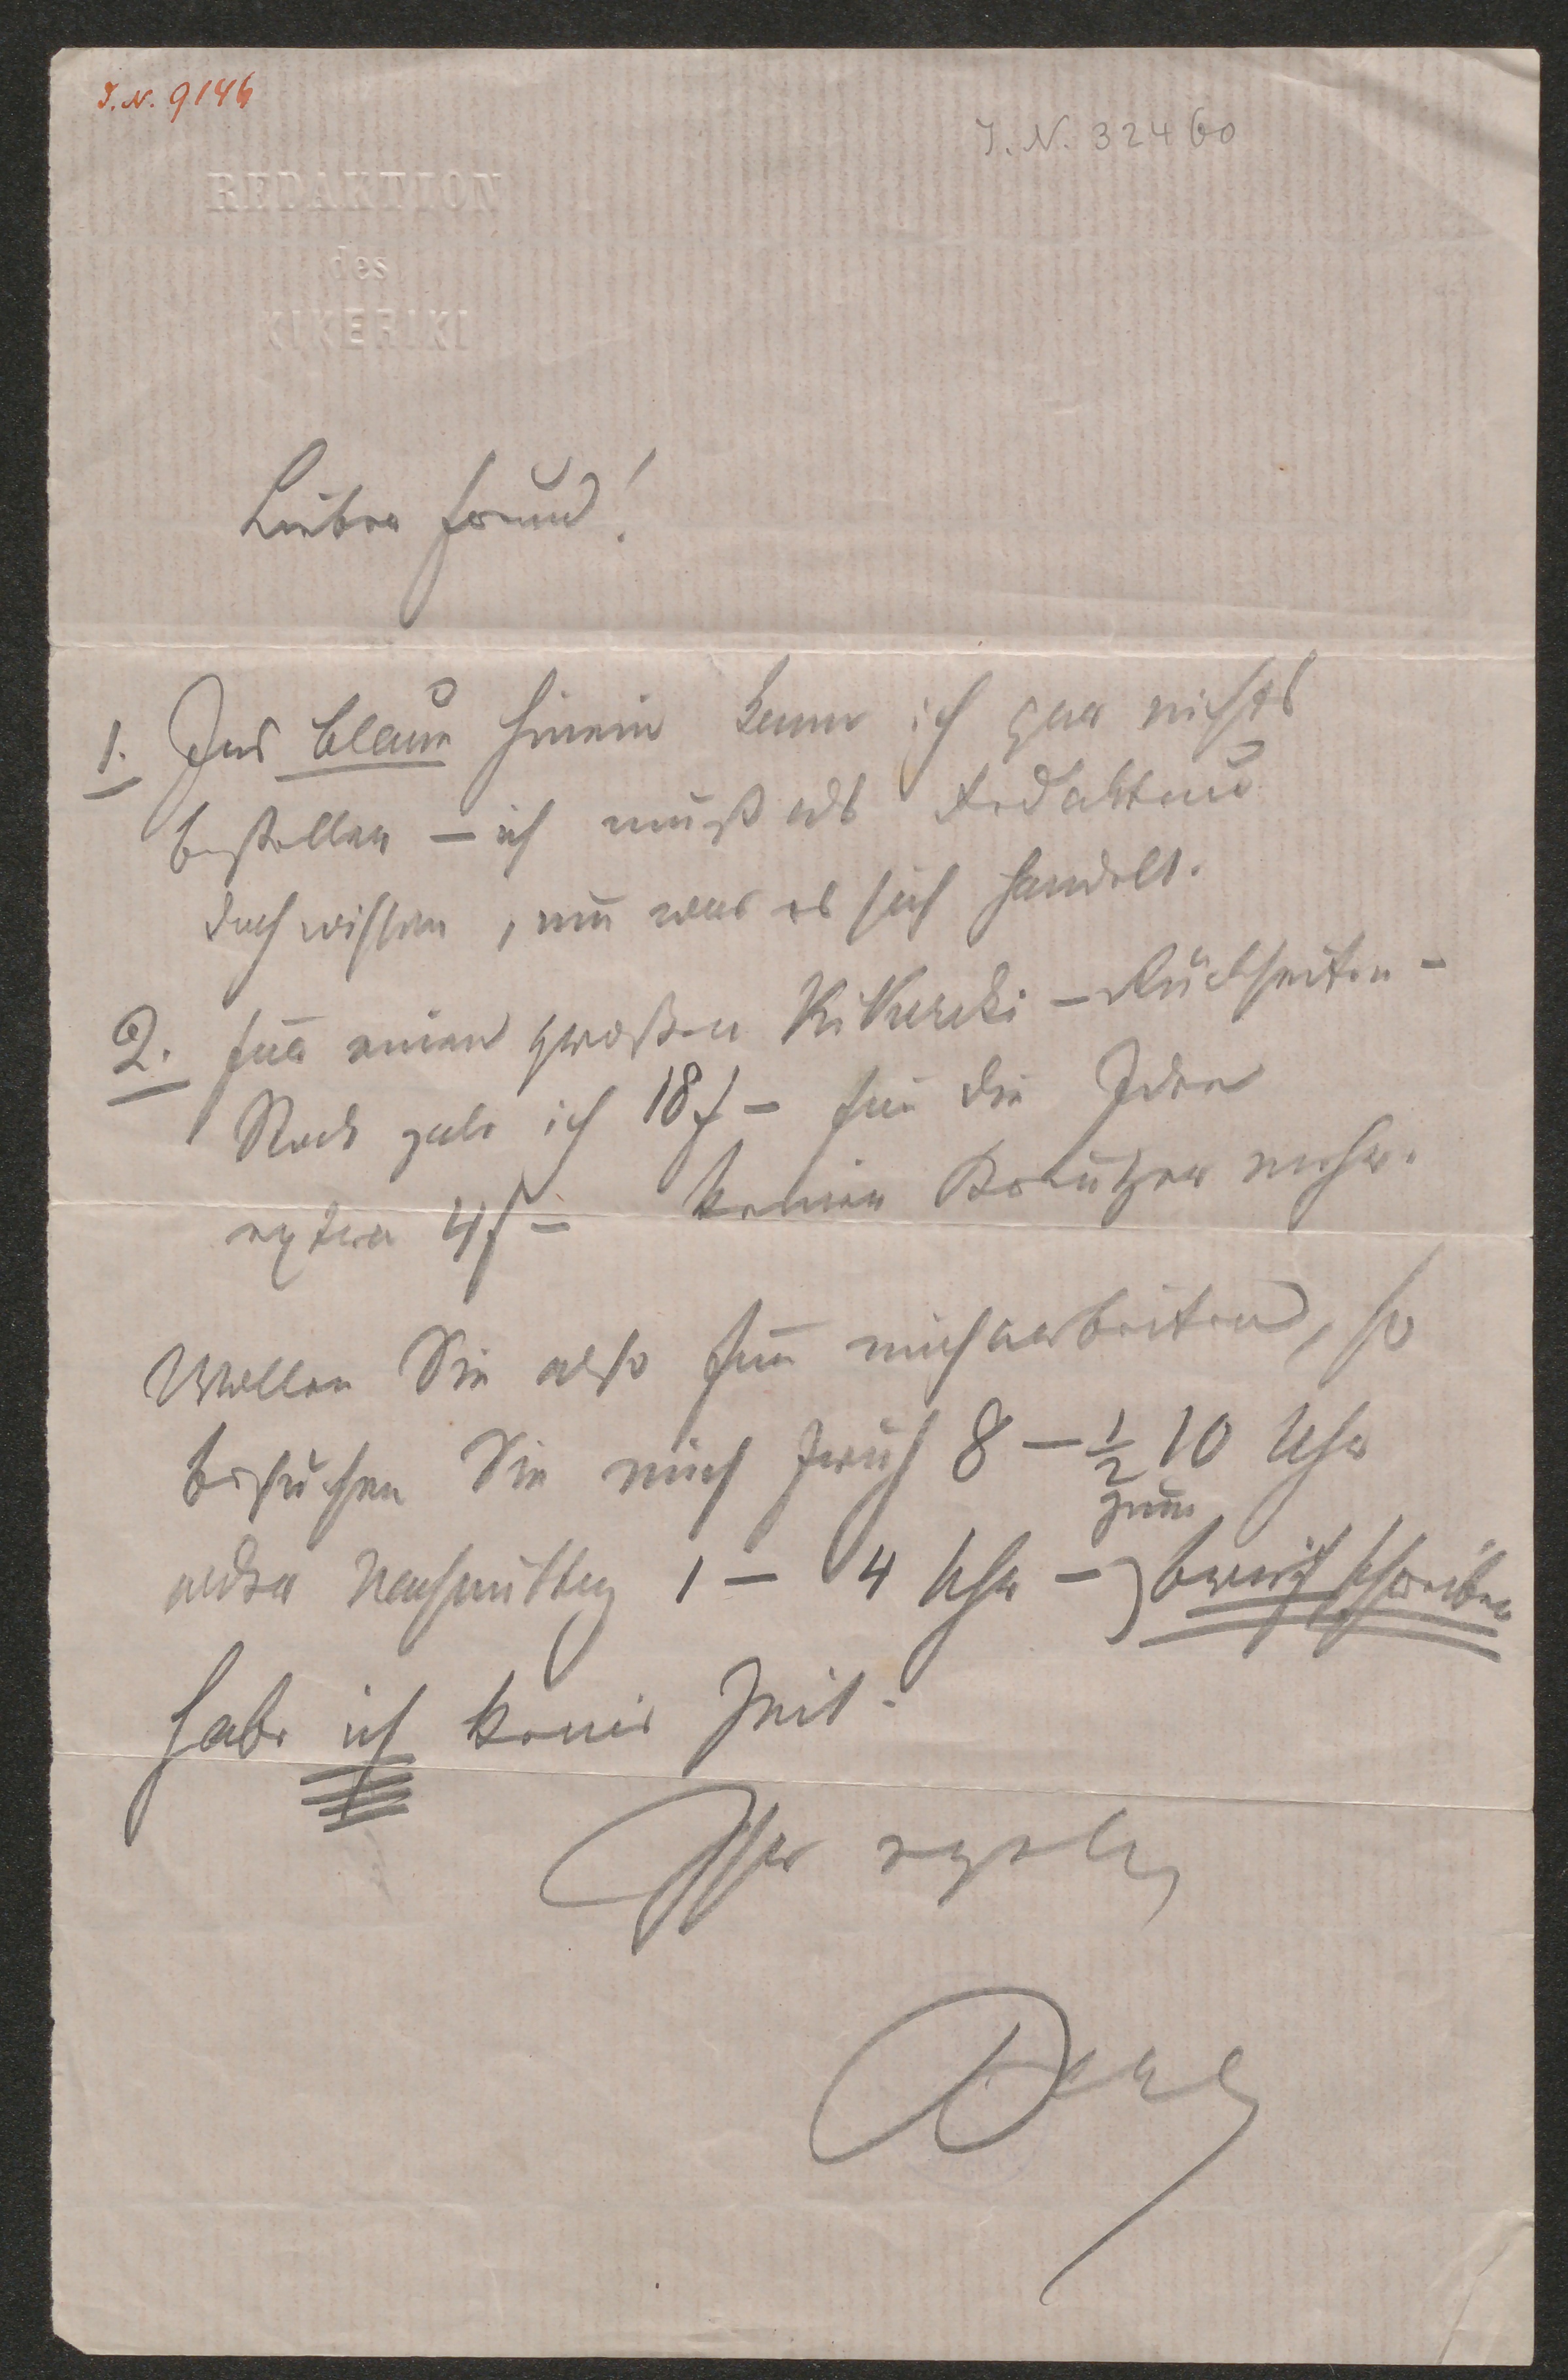 I.N. 9146
I.N. 32460
REDAKTION
des
KIKERIKI
Lieber Freund!
1. Ins blaue hinein kann ich gar nichts
bestellen – ich muß als Redakteur
doch wissen, um was es sich handelt.
2. Für einen großen Kikeriki – Rückseiten –
Stock gebe ich 18 f – für die Idee
extra 4 f – keinen Kreutzer mehr.
Wollen Sie also für mich arbeiten, so
besuchen Sie mich früh 8 – ½ 10 Uhr
oder Nachmittag 1 – 4 Uhr – zum briefschreiben
habe ich keine Zeit.
Ihr